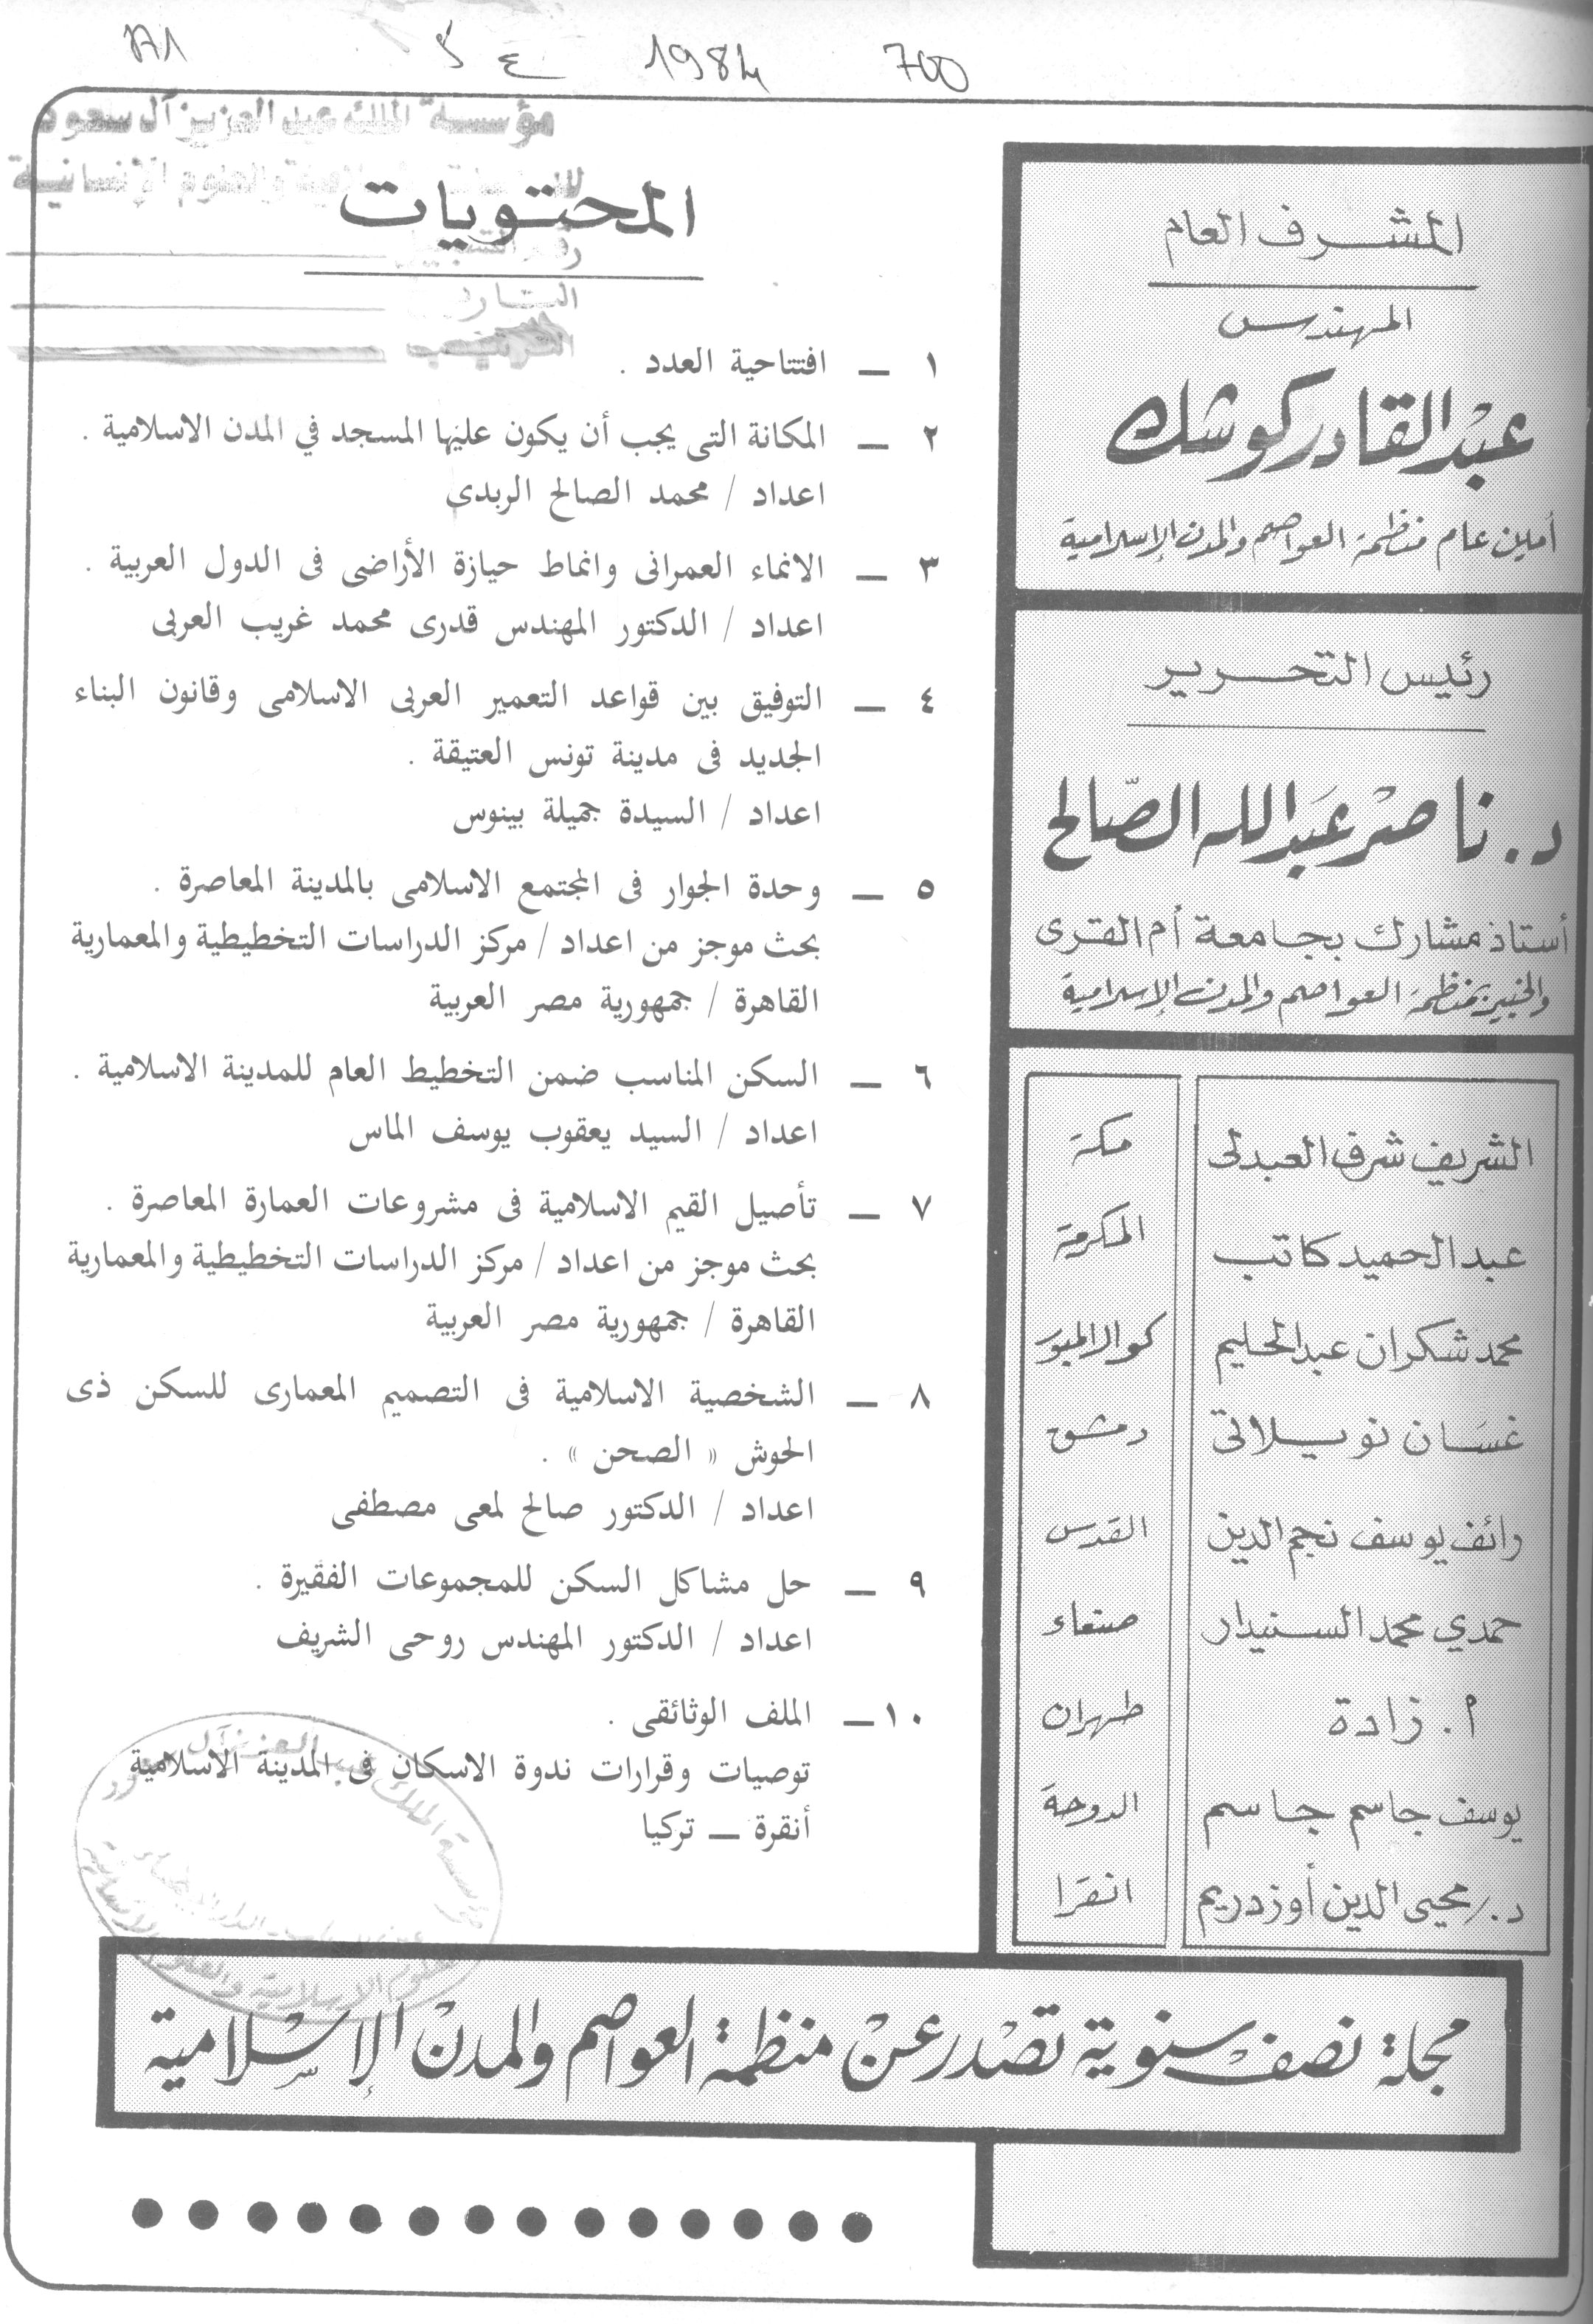 1984
700
مؤسسة الملك عبد العزيز آل سعود
والعلوم الإنسانية
المحتويات
١ — افتتاحية العدد .
٢ — المكانة التى يجب أن يكون عليها المسجد في المدن الاسلامية .
اعداد / محمد الصالح الربدى
٣ — الانماء العمرانى وانماط حيازة الأراضى فى الدول العربية .
اعداد / الدكتور المهندس قدرى محمد غريب العربى
٤ — التوفيق بين قواعد التعمير العربى الاسلامى وقانون البناء
الجديد فى مدينة تونس العتيقة .
اعداد / السيدة جميلة بينوس
٥ — وحدة الجوار فى المجتمع الاسلامى بالمدينة المعاصرة .
بحث موجز من اعداد / مركز الدراسات التخطيطية والمعمارية
القاهرة / جمهورية مصر العربية
٦ — السكن المناسب ضمن التخطيط العام للمدينة الاسلامية .
اعداد / السيد يعقوب يوسف الماس
٧ — تأصيل القيم الاسلامية فى مشروعات العمارة المعاصرة .
بحث موجز من اعداد / مركز الدراسات التخطيطية والمعمارية
القاهرة / جمهورية مصر العربية
٨ — الشخصية الاسلامية فى التصميم المعمارى للسكن ذى
الحوش « الصحن » .
اعداد / الدكتور صالح لمعى مصطفى
٩ — حل مشاكل السكن للمجموعات الفقيرة .
اعداد / الدكتور المهندس روحى الشريف
١٠ — الملف الوثائقى .
توصيات وقرارات ندوة الاسكان فى المدينة الاسلامية
أنقرة — تركيا
المشرف العام
المهندس
عبْد القادر كوشك
أمين عام منظمة العواصم والمدن الإسلامية
رئيس التحرير
د. ناصر عبَد الله الصّالح
أستاذ مشارك بجامعة أم القرى
والخبير بمنظمة العواصم والمدن الإسلامية
الشريف شرف العبدلى مكة
عبد الحميد كاتب المكرمة
محمد شكران عبد الحليم كوالالمبور
غسَان نويلاتى دمشق
رائف يوسف نجم الدين القدس
حمدي محمد السنيدار صنعاء
م. زادة طهران
يوسف جاسم جاسم الدوحة
د./ محيى الدين أوزدريم انقرا
مجلة نصفْ سنوية تصْدر عنْ منظمة العواصم والمدنْ الإسْلامية